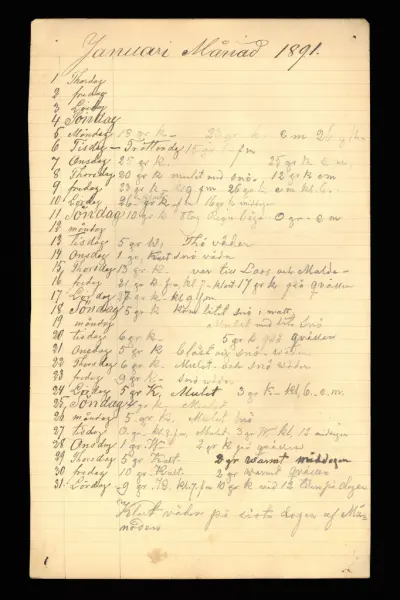 Januari Månad 1891.
1 Thorsdag
2 fredag
3 Lördag
4 Söndag
5 Måndag 13 gr k - 23 gr k. e m
6 Tisdag - Trettondag 15 gr f m
7 Onsdag 25 gr k. 25 gr k. e m.
8 Thorsdag 20 gr k mulet med snö, 12 gr k em
9 fredag 23 gr k - kl 9 f m 26 gr k e m kl. 6.
10 Lördag 26 gr k. f m 16 gr k middag
11 Söndag 10 gr k 0 gr - e m
12 måndag
13 tisdag 5 gr W, Thö väder
14 Onsdag 1 gr, Kallt snö väder
15 Thorsdag 13 gr k - var till Loos och
16 fredag 21 gr k. f m, kl 7 - 17 gr k på qvällen
17 Lördag 27 gr k - kl 9 f m
18 Söndag 5 gr k kom litet snö i natt
19 måndag Mulet med lite Snö
20 tisdag 6 gr k - 5 gr k på qvällen
21 Onsdag 5 gr k blåst och snö -
22 Thorsdag 6 gr k. Mulet - och snö väder
23 fredag 9 gr k - snö väder
24 Lördag 5 gr K, Mulet 3 gr k - kl 6. e. m.
25 Söndag gr k, Mulet
26 måndag 5 gr k. Mulet snö
27 tisdag 0 gr. kl 7 f m, Mulet - 2 gr W kl, 12 middagen
28 Onsdag 1 gr. W - 2 gr k på qvällen
29 Thorsdag 5 gr Kallt 2 gr warmt middagen
30 fredag 10 gr. Kallt. 2 gr warmt qvällen
31 Lördag 9 gr. K. kl 7 f m 10 gr k vid 12 tiden på dagen
Klart väder på sista dagen af Må-
naden